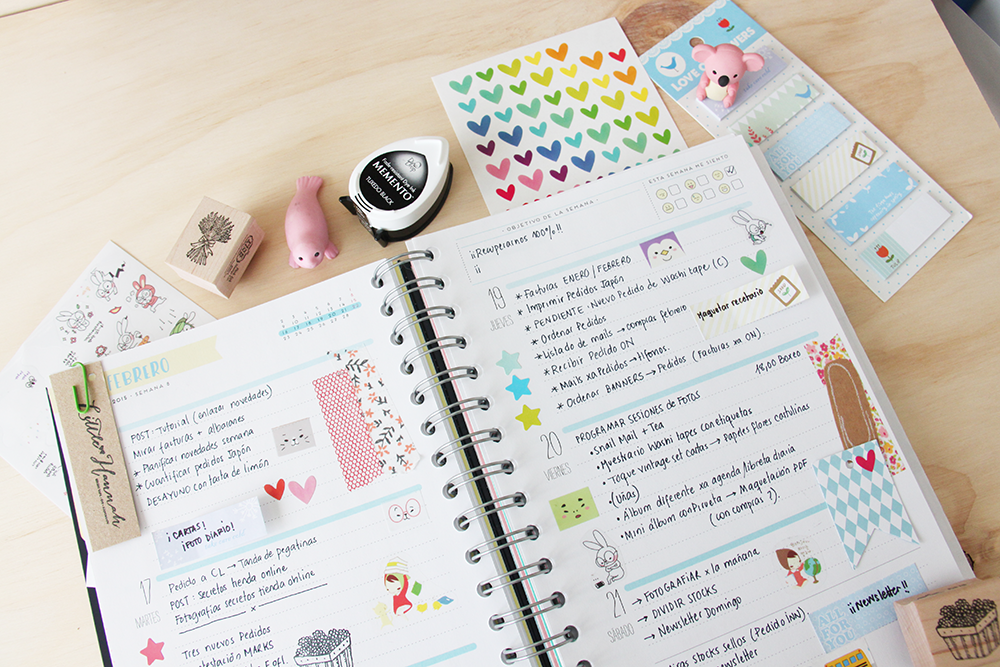 Fade-resistant Dye Ink
MEMENTO™
TUXEDO BLACK
LOVE
FEBRERO
2015 · SEMANA 8
16 17 18 19 20 21 22
Little Hannah
POST: Tutorial (enlazar novedades)
Mirar facturas + albaranes
* Planificar novedades semana
* Cuantificar pedidos Japón
DESAYUNO con tarta de limón
¡CARTAS!
¡FOTO DIARIO!
17
MARTES
Pedido a CL → Tanda de pegatinas
POST: Secretos tienda online
Fotografías secretos tienda online
x
Tres nuevos Pedidos
· OBJETIVO DE LA SEMANA ·
¡¡Recuperarnos 100%!!
¡¡
ESTA SEMANA ME SIENTO
19
JUEVES
* Facturas ENERO / FEBRERO
* Imprimir Pedidos Japón
* PENDIENTE: Nuevo Pedido de Washi tape (C)
* Ordenar Pedidos
* Listado de mails → compras febrero
* Recibir Pedido ON
* Mails xa Pedidos → Hechos.
* Ordenar BANNERS → Pedidos (facturas xa ON).
Maquetar recetario
20
VIERNES
PROGRAMAR SESIONES DE FOTOS
18,00 Boxeo
• Snail Mail + Tea
• Muestrario Washi tapes con etiquetas
• Toque vintage set cartas → Papeles flores cartulinas
(uñas)
• Álbum diferente xa agenda/libreta diaria
• Mini álbum con Pirueta → Maquetación PDF
(con compas?).
21
SÁBADO
→ FOTOGRAFIAR x la mañana
→ DIVIDIR STOCKS
→ Newsletter Domingo
ALL FOR YOU
¡¡Newsletter!!
stocks sellos (Pedido
newsletter